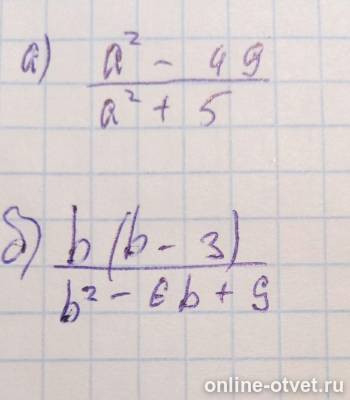 а) a² - 49
a² + 5
б) b(b - 3)
b² - 6b + 9
online-otvet.ru